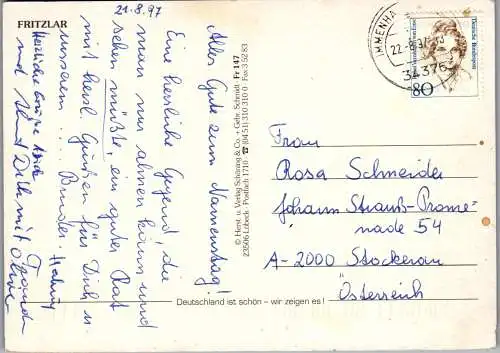 FRITZLAR
21.8.97
Alles Gute zum Namenstag!
Eine herrliche Gegend, die
man nur ahnen kann und
sehen müßte, ein guter Rat
mit herzl. Grüßen für Dich u.
unseren ... Bruder. Helmut
Herzliche Grüße
und Dich mit
© Herst. u. Verlag Schöning & Co. + Gebr. Schmidt · Fr 147
23506 Lübeck · Postfach 1710 · ☎ (0451) 310 310 0 · Fax 3 52 83
IMMENHA
22.-8.97
34376
Deutsche Bundespost
80
Frau
Rosa Schneider
Johann Strauß-Prome-
nade 54
A-2000 Stockerau
Österreich
Deutschland ist schön – wir zeigen es!